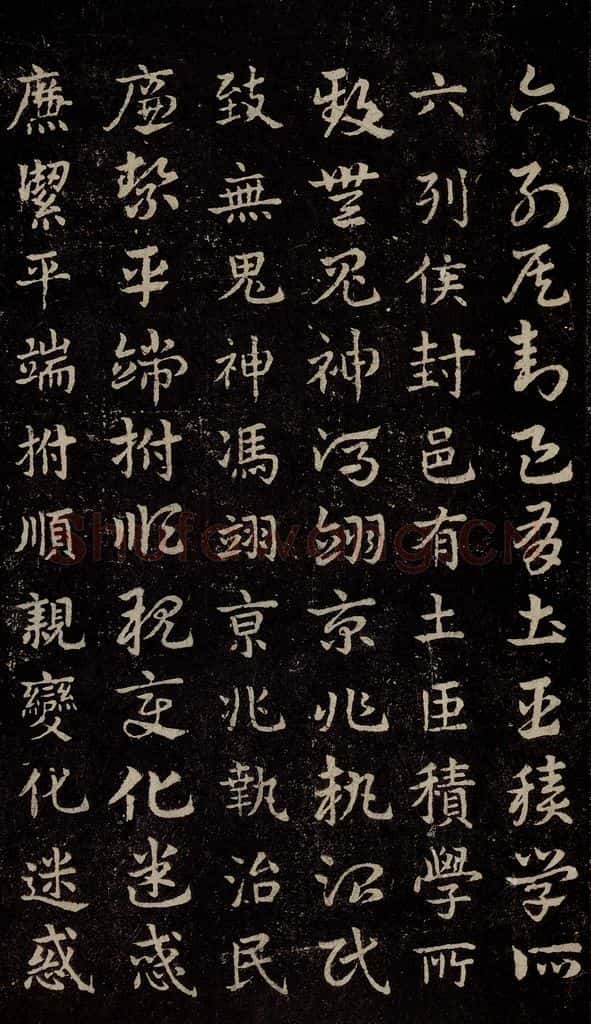 六列侯封邑有土臣積學所
六列侯封邑有土臣積學所
致無鬼神馮翊京兆執治民
致無鬼神馮翊亰兆執治民
廉絜平端拊順親變化迷惑
廉絜平端拊順親變化迷惑
Shufawang.CN